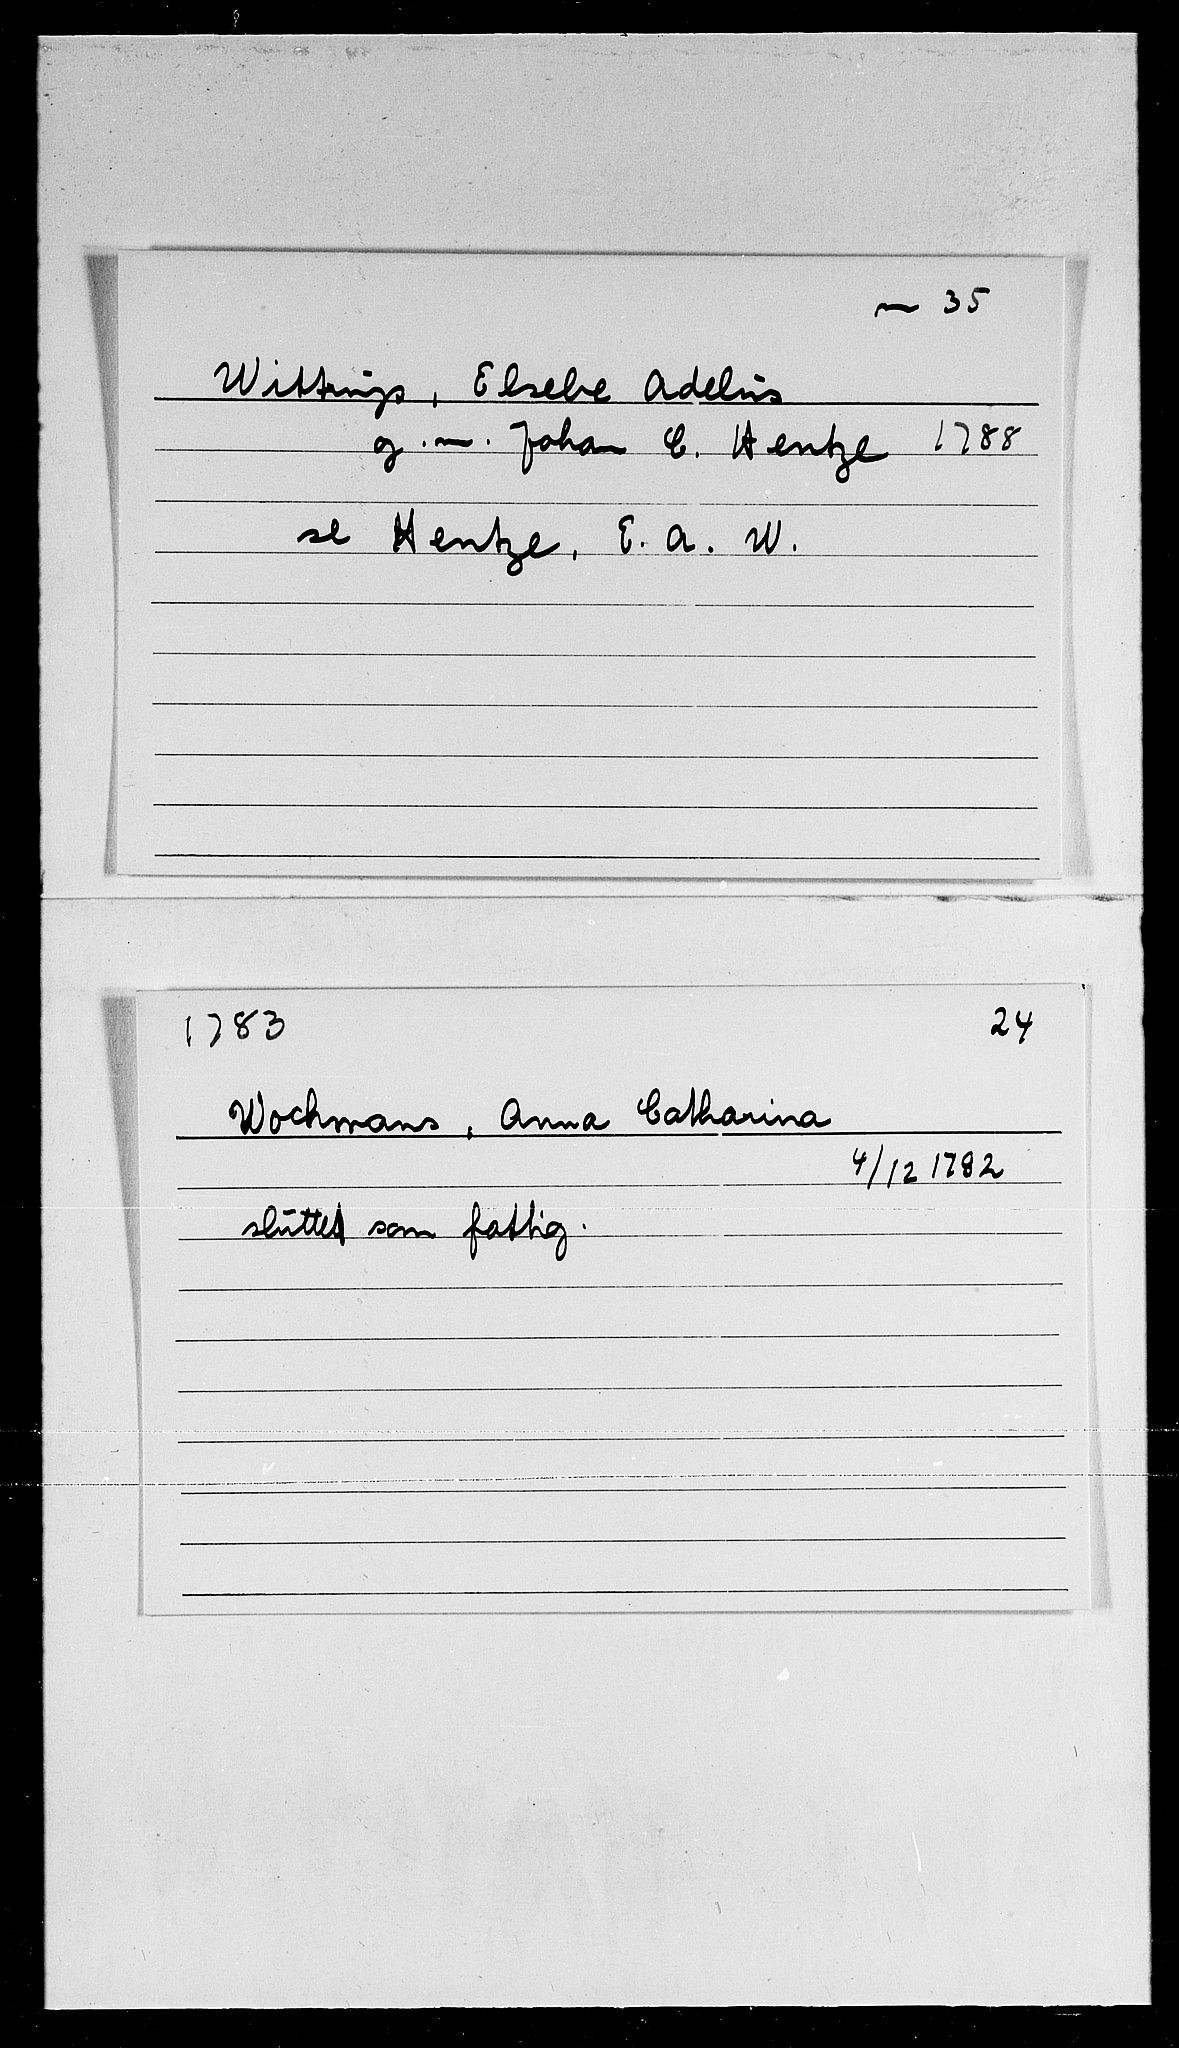 ~ 35
Wittrings, Elsebe Adelus
g.m. Johan C. Hentze 1788
se Hentze, E. A. W.
1783 24
Wochmans, Anna Catharina
4/12 1782
sluttet som fattig.